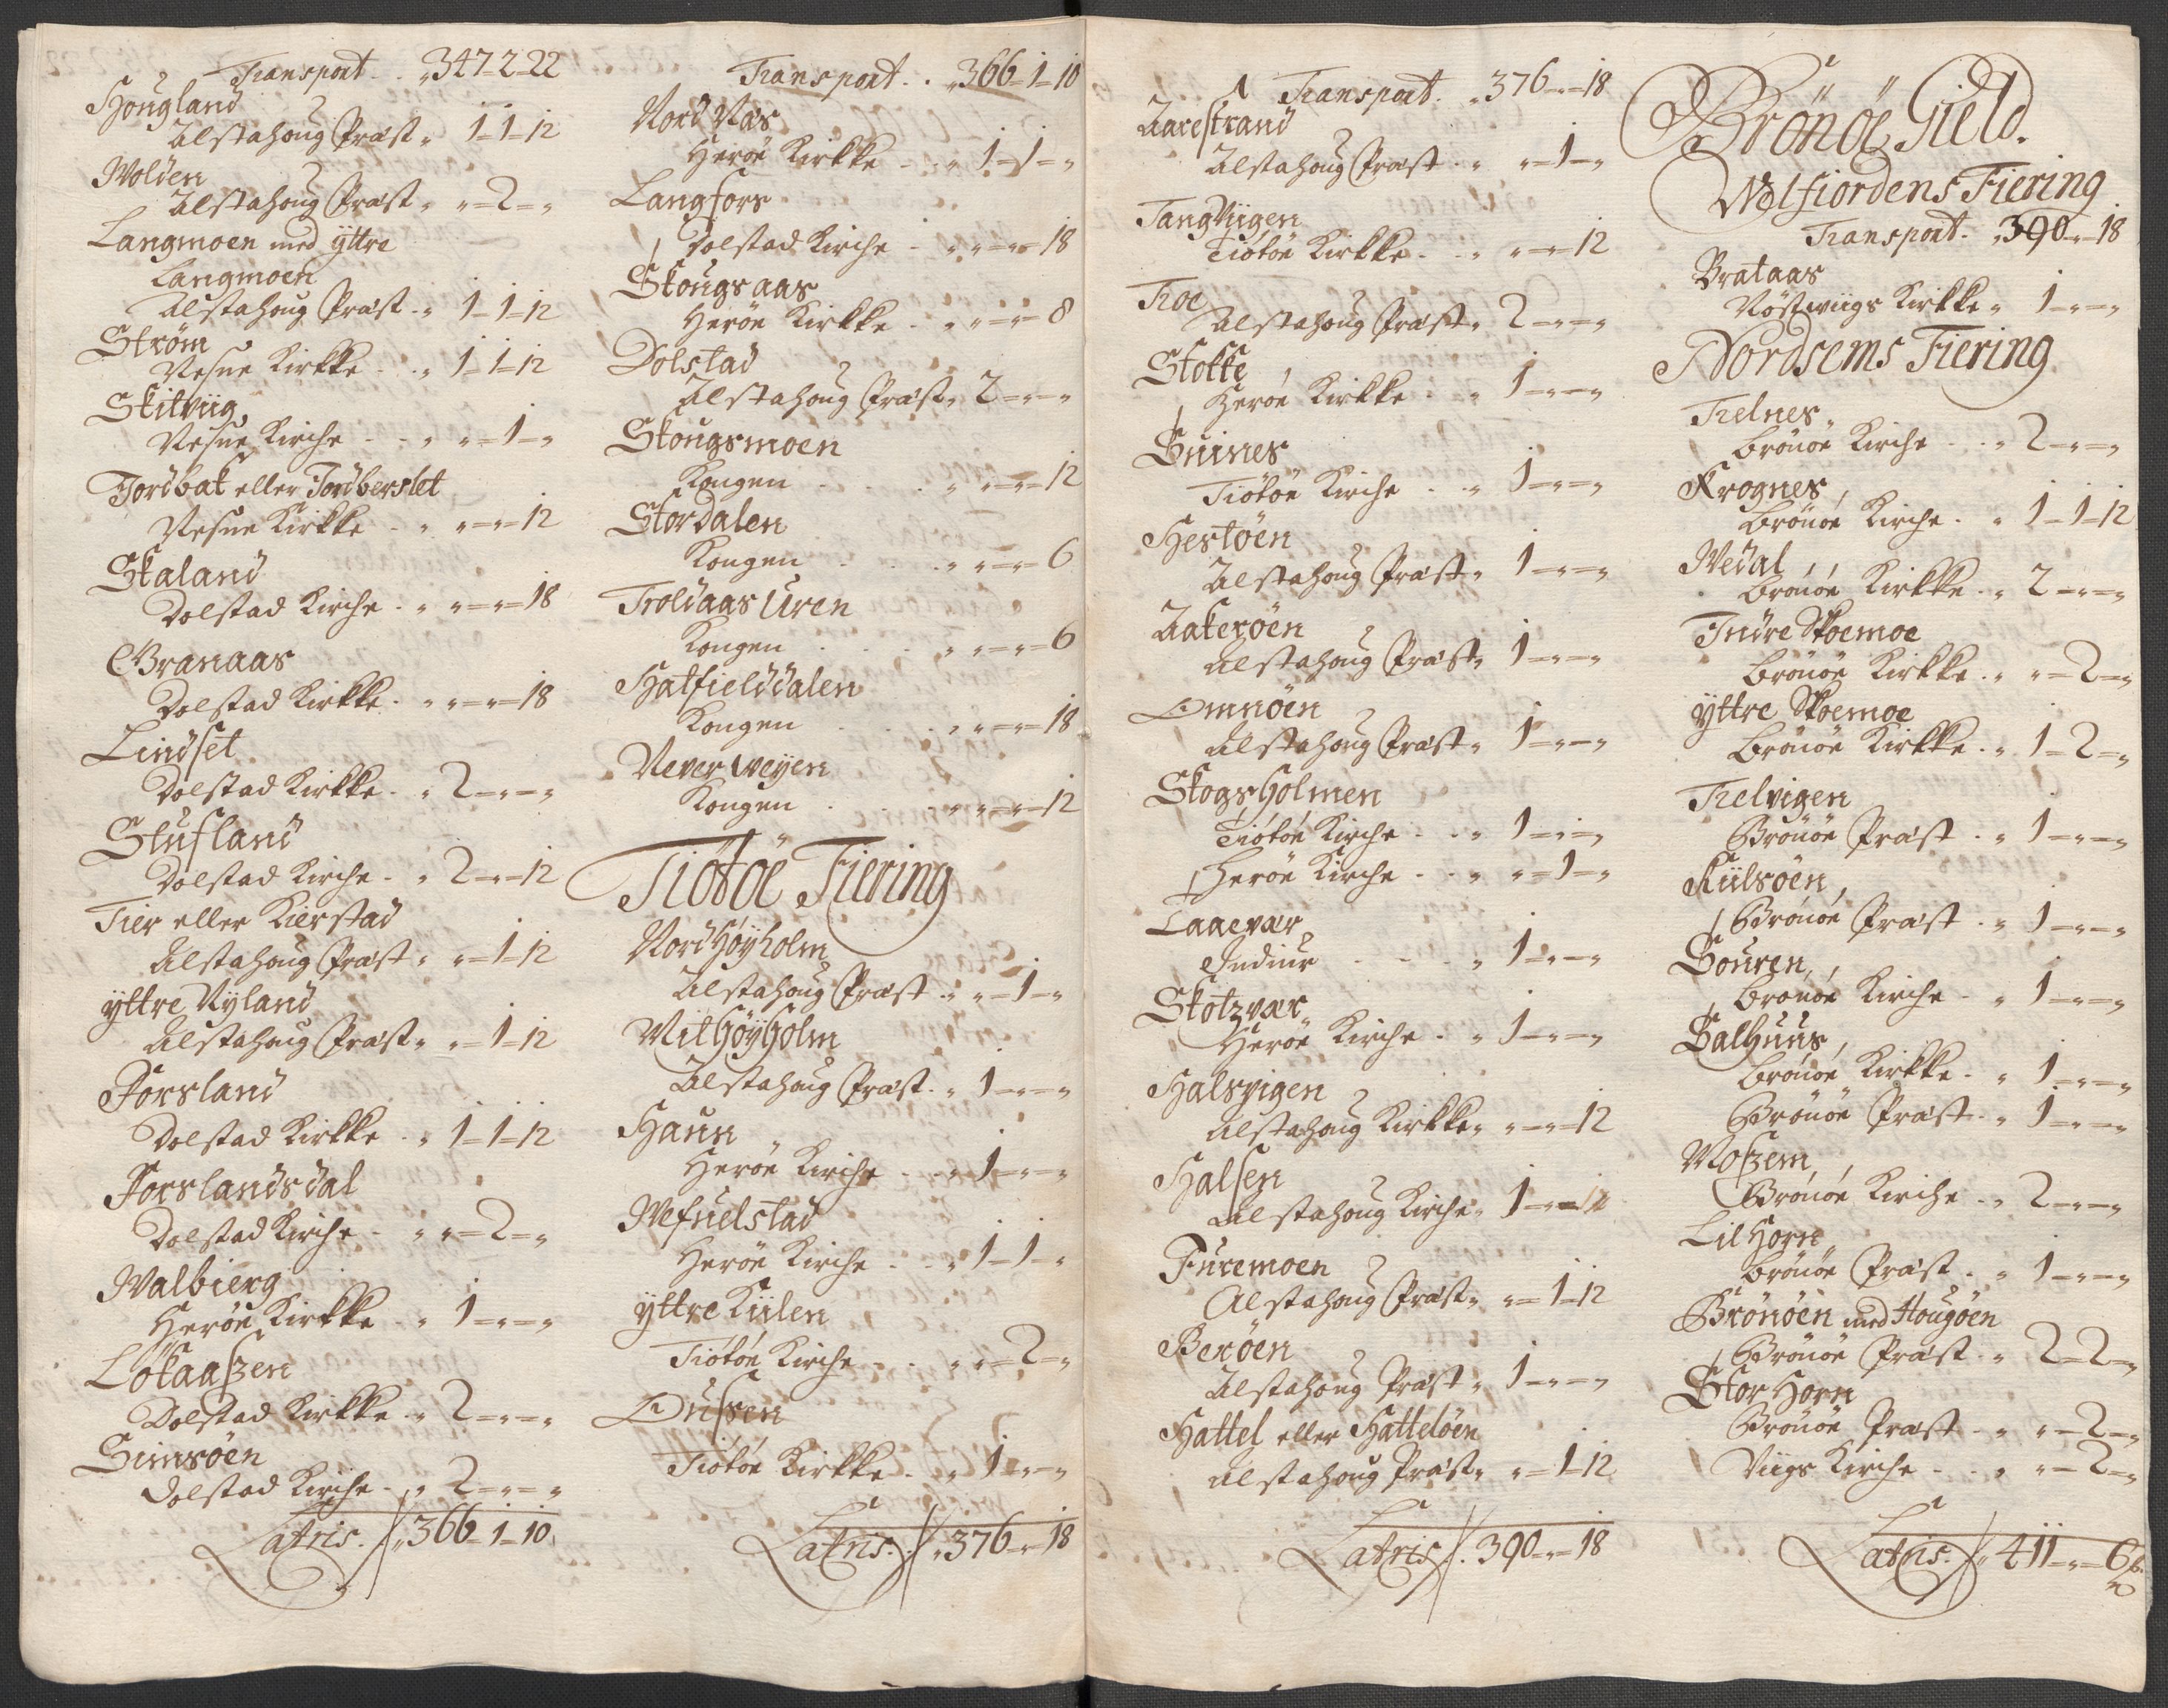 Transport . . „ 347-2-22
Hougland
Alstahoug Præst „ 1-1-12
Wolden
Alstahoug Præst „ „-2-„
Langmoen med ÿttre
Langmoen
Alstahoug Præst . „ 1-1-12
Strøm
Vefsne Kirkke . . „ 1-1-12
Skitviig
Vefsne Kirche - - „ „-1-„
Jordbak eller Jordberslet
Vefsne Kirkke - „ „-„-12
Skaland
Dolstad Kirche . „ „-„-18
Granaas
Dolstad Kirkke . „ „-„-18
Lindset
Dolstad Kirkke . „ 2-„-„
Stufland
Dolstad Kirche . „ 2-„-12
Tier eller Kierstad
Alstahoug Præst „ „-1-12
ÿttre Rÿland
Alstahoug Præst „ „-1-12
Forsland
Dolstad Kirkke . „ 1-1-12
Forslandsdal
Dolstad Kirche . „ „-2-„
Walbierg
Herøe Kirkke . „ 1-„-„
Løkaaszen
Dolstad Kirkke . „ 2-„-„
Simsøen
Dolstad Kirche . „ 2-„-„
Latris . „ 366-1-10
Transport . . „ 366-1-10
Nord Næs
Herøe Kirkke . . „ 1-1-„
Langfors
Dolstad Kirche - „ „-„-18
Skougsaas
Herøe Kirkke . „ „-„-8
Dolstad
Alstahoug Præst „ 2-„-„
Skougsmoen
Kongen . . . „ „-„-12
Stordalen
Kongen . . . „ „-„-6
Troldaas Uren
Kongen . . . „ „-„-6
Hatfielddalen
Kongen . . . „ „-„-18
Never weÿen
Kongen . . . „ „-„-12
Tiøtøe Fiering
Nord Høÿholm
Alstahoug Præst . „ „-1-„
Mit Høÿholm
Alstahoug Præst . „ 1-„-„
Haun
Herøe Kirche . . „ 1-„-„
Wefuelstad
Herøe Kirche . . „ 1-1-„
ÿttre Kiilen
Tiøtøe Kirche . . „ „-2-„
Ousen
Tiøtøe Kirkke . „ 1-„-„
Latris . „ 376-„-18
Transport . „ 376-„-18
Aarestrand
Alstahoug Præst . „ „-1-„
Tangviigen
Tiøtøe Kirkke . . „ „-„-12
Troe
Alstahoug Præst „ 2-„-„
Stokke
Herøe Kirkke . „ 1-„-„
Suines
Tiøtøe Kirche . . „ 1-„-„
Hestøen
Alstahoug Præst „ 1-„-„
Aakerøen
Alstahoug Præst „ 1-„-„
Omnøen
Alstahoug Præst „ 1-„-„
Skogsholmen
Tiøtøe Kirche . . „ 1-„-„
Herøe Kirche . . „ „-1-„
Laaevær
Indiur . . . „ 1-„-„
Skotzvær
Herøe Kirche . „ 1-„-„
Halsvigen
Alstahoug Kirkke „ „-„-12
Halsen
Alstahoug Kirche „ 1-„-12
Furemoen
Alstahoug Præst „ „-1-12
Berøen
Alstahoug Præst „ 1-„-„
Hattel eller Hatteløen
Alstahoug Præst „ „-1-12
Latris . 390-„-18
Brønøe Gield.
Welfiordens Fiering
Transport . „ 390-„-18
Brataas
Nøstwiigs Kirkke „ 1-„-„
Nordsems Fiering
Tielnes
Brønøe Kirche . . „ 2-„-„
Krognes
Brønøe Kirche . „ 1-1-12
Wedal
Brønøe Kirkke . „ 2-„-„
Indre Skoemoe
Brønøe Kirkke . „ „-2-„
ÿttre Skoemoe
Brønøe Kirkke . „ 1-2-„
Tielvigen
Brønøe Præst . „ 1-„-„
Kiilsøen
Brønøe Præst . „ 1-„-„
Souren
Brønøe Kirche . „ 1-„-„
Salhuus
Brønøe Kirkke . „ 1-„-„
Brønøe Præst . „ 1-„-„
Moszem
Brønøe Kirche . „ 2-„-„
Lil Horn
Brønøe Præst . „ 1-„-„
Brønøen med Hougøen
Brønøe Præst . „ 2-2-„
Stor Horn
Brønøe Præst . „ „-2-„
Viigs Kirche . . „ „-2-„
Latris . „ 411-„-6